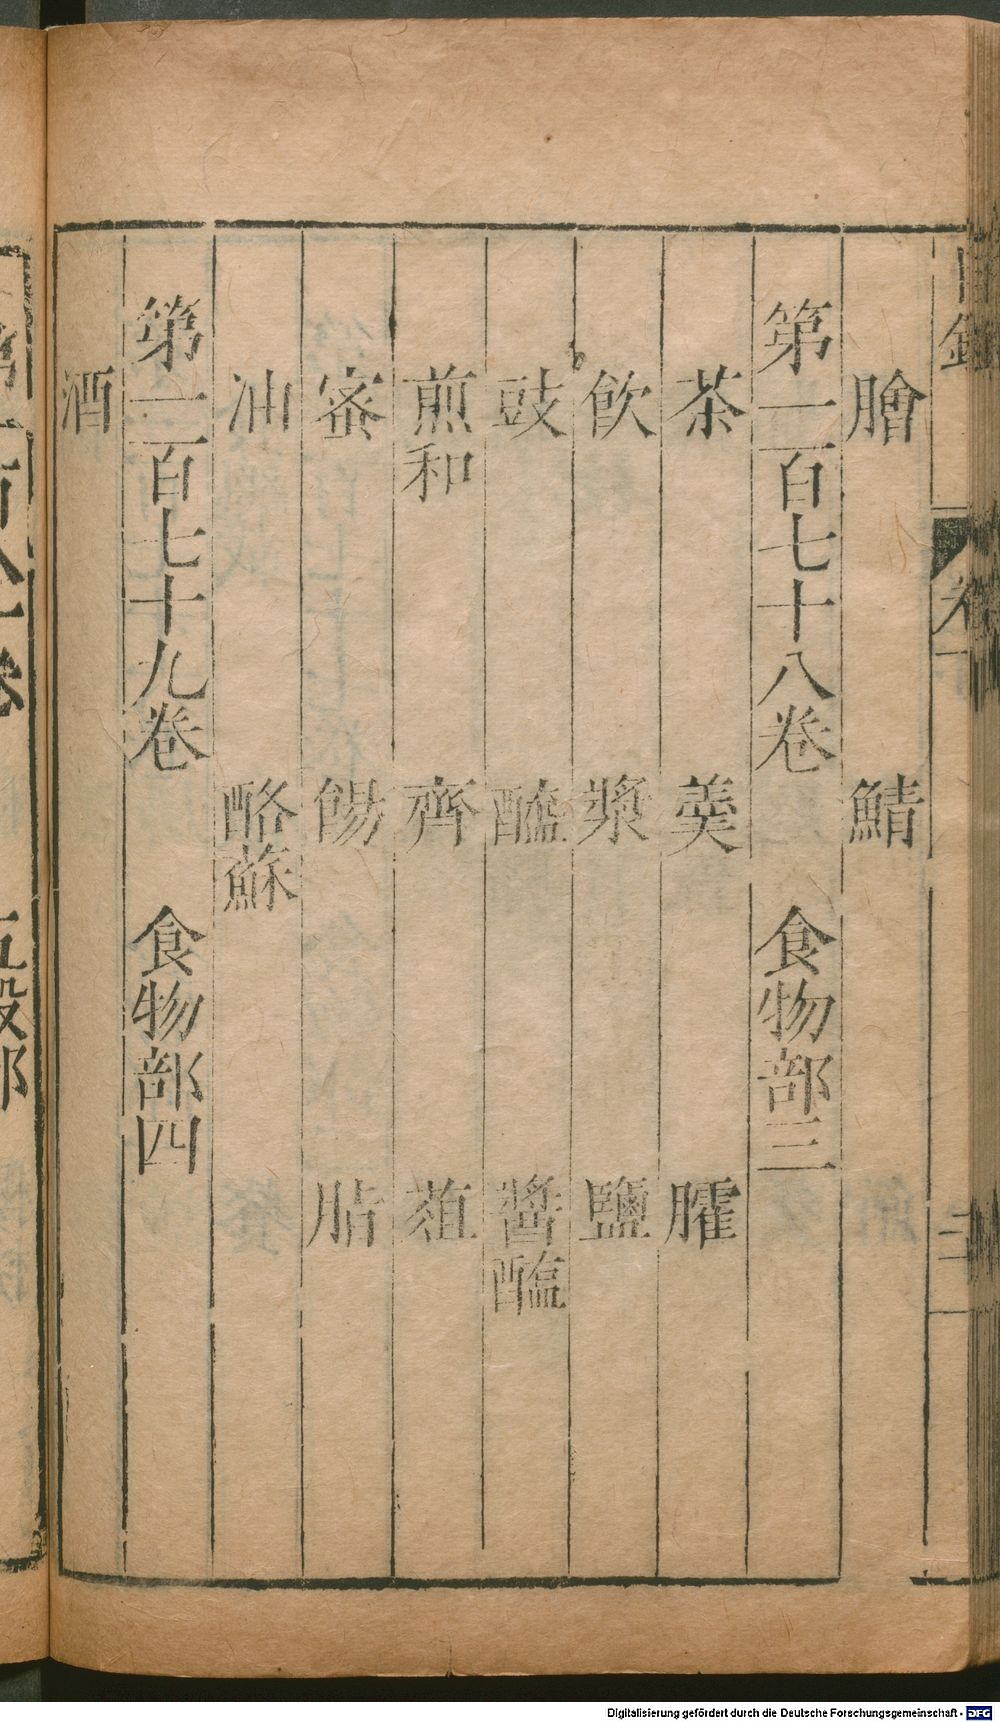 膾 鯖
第一百七十八卷 食物部三
茶 羮 臛
飲 漿 鹽
豉 醯 醬醢
煎和 齊 菹
蜜 餳 脂
油 酪蘇
第一百七十九卷 食物部四
酒
Digitalisierung gefördert durch die Deutsche Forschungsgemeinschaft - DFG